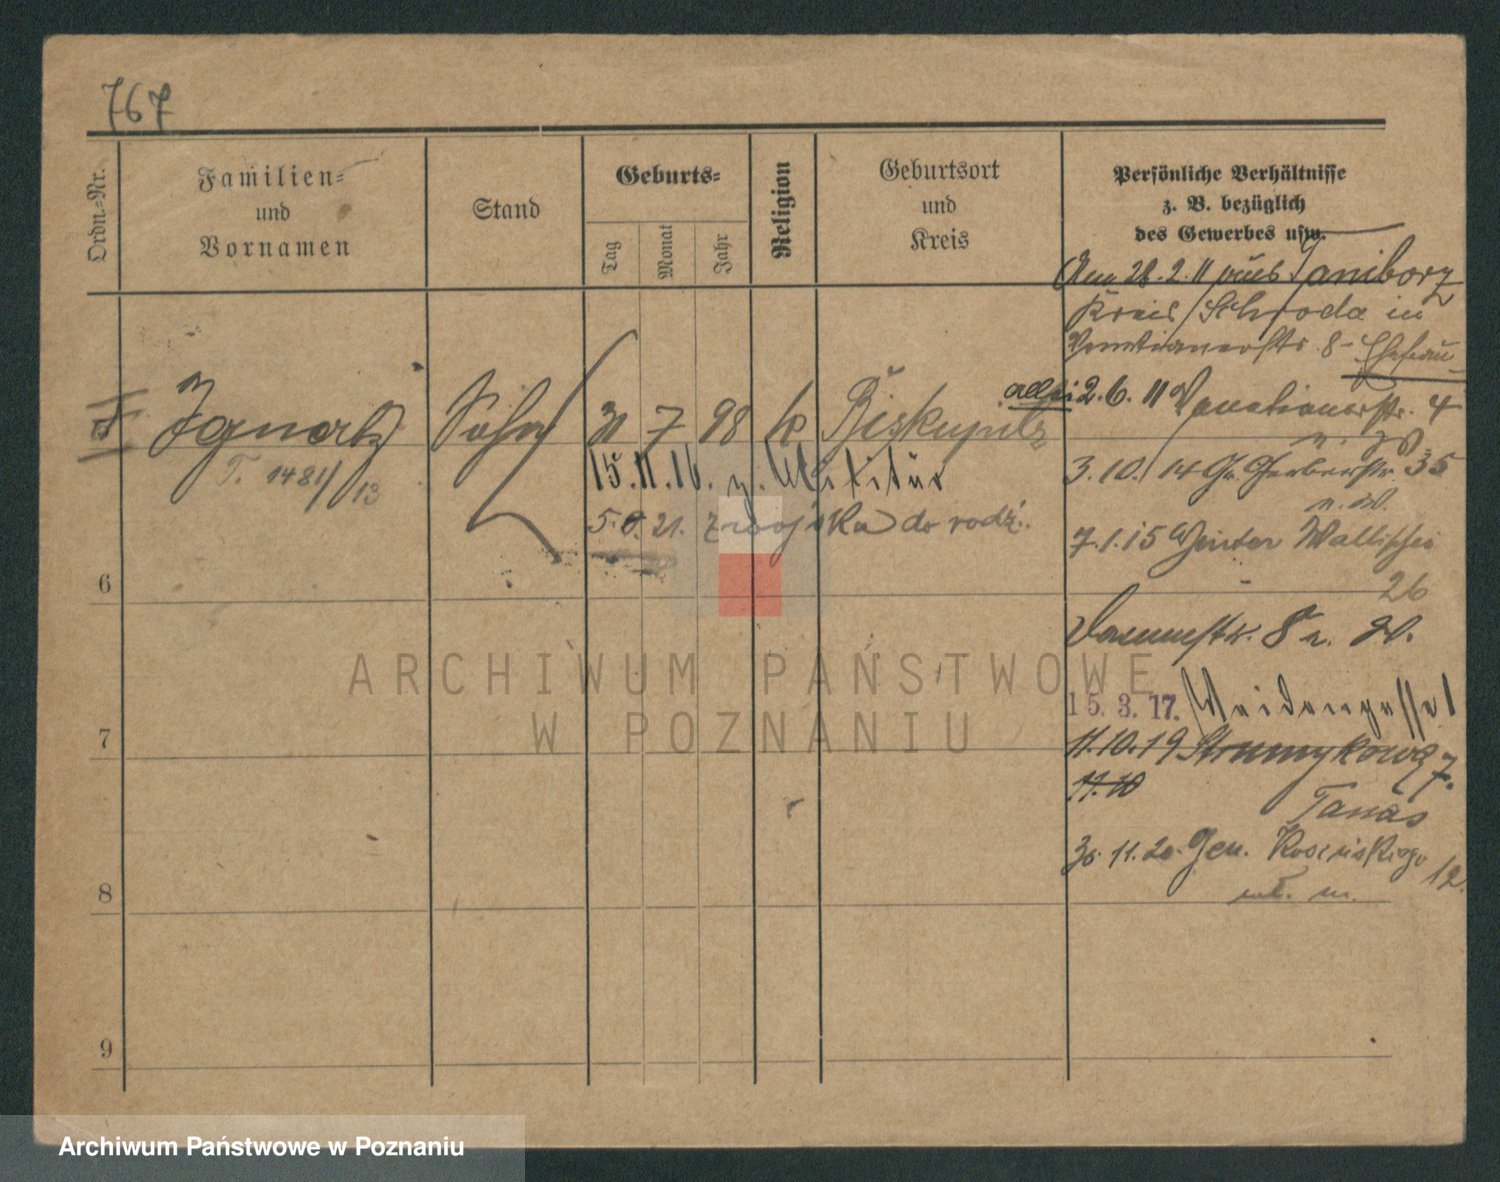 767
Ordn.-Nr.
Familien-
und
Vornamen
Stand
Geburts-
Tag
Monat
Jahr
Religion
Geburtsort
und
Kreis
Persönliche Verhältnisse
z. B. bezüglich
des Gewerbes usw.
Am 28. 2. 11 aus Janiborz
Kreis Schroda in
Venetianerstr 8 - Ehefrau
2. 6. 11 Venetianerstr. 4
Ignatz Sohn 31 7 98 k Biskupitz
T. 1481/13
15. 11. 16. z. Militär
5. 21. z wojska do rodz.
3. 10. 14 Gr. Gerberstr. 35
n. W.
7. 1. 15 Hinter Wallischei
26
Dammstr. 8 n. W.
15. 3. 17. Weidengasse 1
11. 10. 19 Strumykowa 7.
11. 10
Tanas
30. 11. 20. Gen. Kosinskiego 12.
6
7
8
9
ARCHIWUM PAŃSTWOWE
W POZNANIU
Archiwum Państwowe w Poznaniu